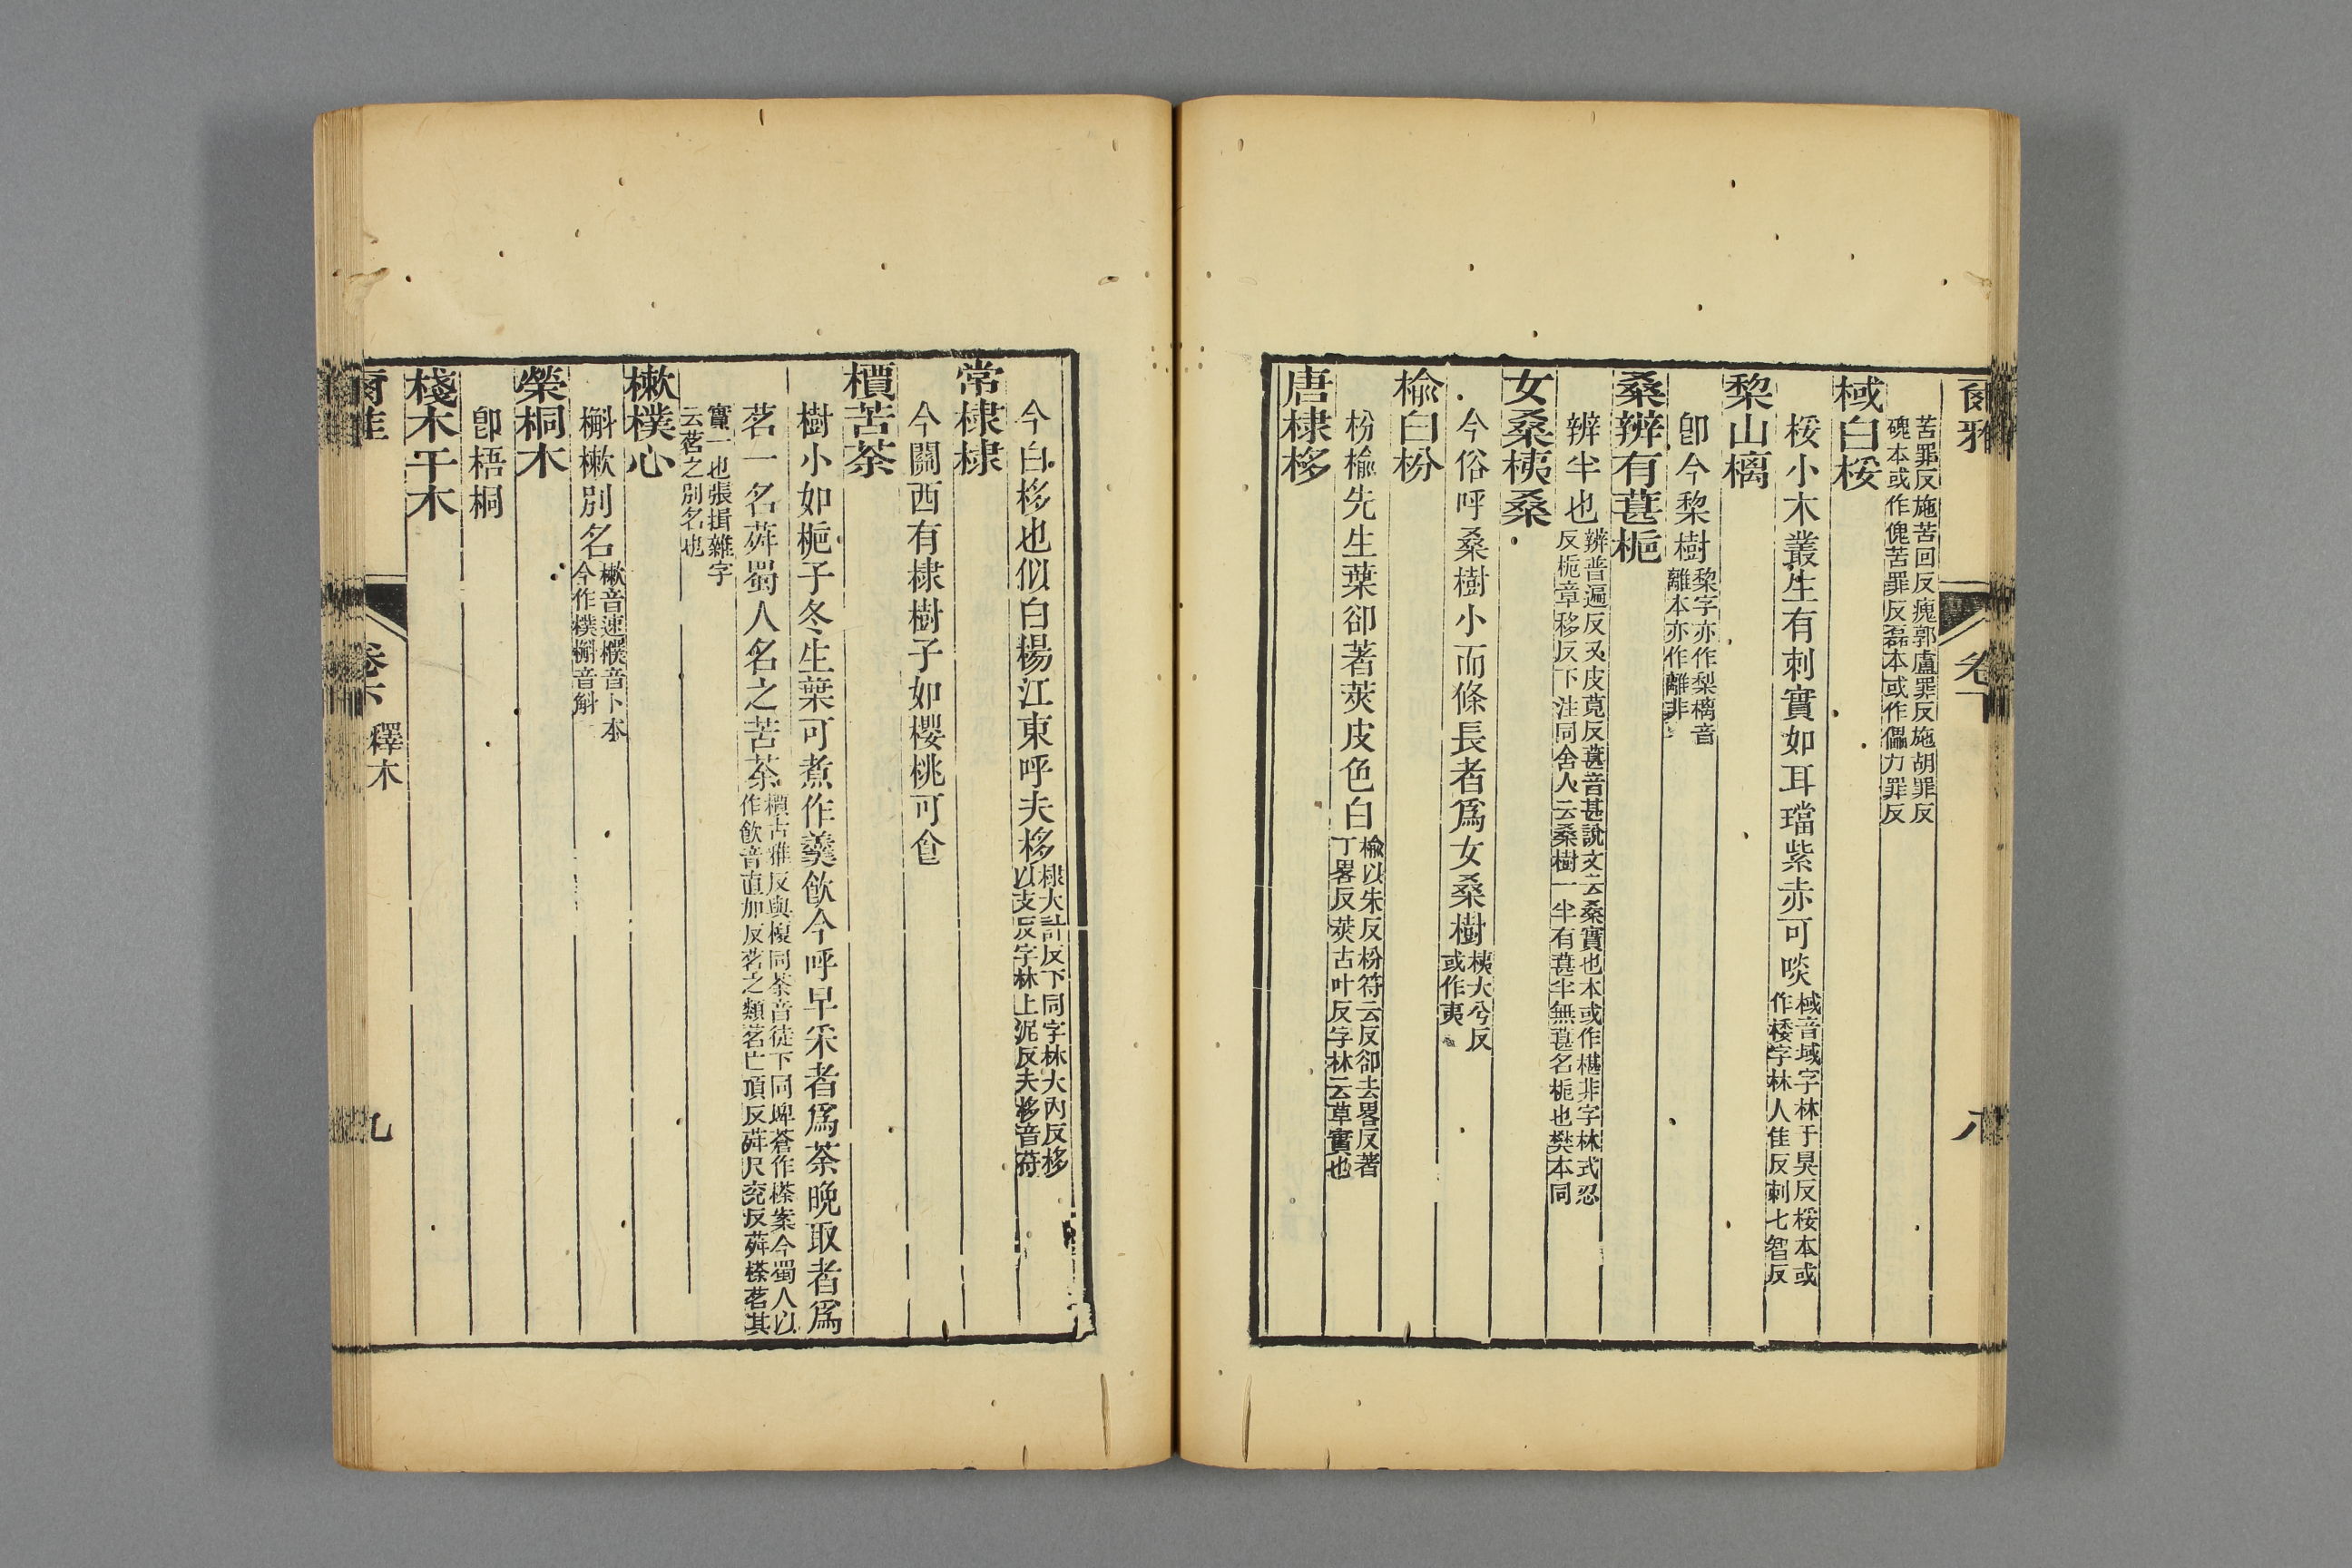 苦罪反施苦回反瘣郭盧罪反施胡罪反
磈本或作傀苦罪反磊本或作儡力罪反
棫白桵
桵小木叢生有刺實如耳璫紫赤可啖
棫音域字林于昊反桵本或
作㮃字林人隹反刺七智反
棃山樆
卽今棃樹
棃字亦作梨樆音
離本亦作離非
桑辨有葚梔
辨半也
辨普遍反又皮莧反葚音甚說文云桑實也本或作椹非字林式忍
反梔章移反下注同舍人云桑樹一半有葚半無葚名梔也樊本同
女桑桋桑
今俗呼桑樹小而條長者爲女桑樹
桋大兮反
或作夷
榆白枌
枌榆先生葉卻著莢皮色白
榆以朱反枌符云反卻去畧反著
丁畧反莢古叶反字林云草實也
唐棣栘
爾雅
卷下
八
今白栘也似白楊江東呼夫栘
棣大計反下同字林大內反栘
以支反字林上泥反夫栘音符
常棣棣
今關西有棣樹子如櫻桃可食
檟苦荼
樹小如梔子冬生葉可煮作羹飲今呼早采者爲荼晚取者爲
茗一名荈蜀人名之苦荼
檟古雅反與榎同荼音徒下同埤蒼作㯃案今蜀人以
作飲音直加反茗之類茗亡頂反荈尺兖反荈㯃茗其
實一也張揖雜字
云茗之別名也
樕樸心
槲樕別名
樕音速樸音卜本
今作樸槲音斛
榮桐木
卽梧桐
棧木干木
爾雅
卷下
釋木
九